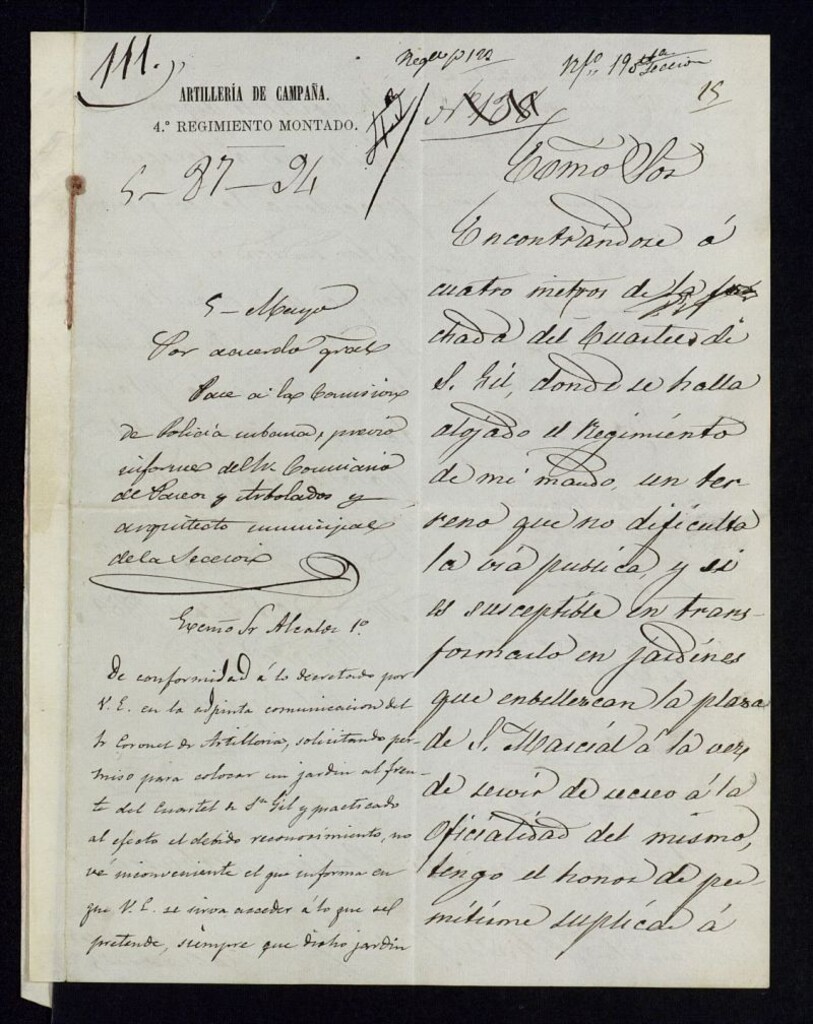 111.
ARTILLERÍA DE CAMPAÑA.
4.º REGIMIENTO MONTADO.
5-87-94
5-Mayo
Por acuerdo gral
Pase a la Comision
de Policía urbana, previo
informe del Sr. Comisario
de Paseos y Arbolados y
arquitecto municipal
de la Seccion
Excmo Sr Alcalde 1º.
De conformidad á lo decretado por
V. E. en la adjunta comunicacion del
Sr Coronel de Artilleria, solicitando per-
miso para colocar un jardin al fren-
te del Cuartel de Sn Gil y practicado
al efecto el debido reconocimiento, no
vé inconveniente el que informa en
que V. E. se sirva acceder á lo que se
pretende, siempre que dicho jardin
Regº pº 122
Nº 138
15
Ecsmo Sor
Encontrándose á
cuatro metros de la fa
chada del Cuartel de
S. Gil, donde se halla
alojado el Regimiento
de mi mando, un ter-
reno que no dificulta
la via publica, y si
es susceptible en trans-
formarlo en jardines
que enbellezcan la plaza
de S. Marcial á la vez
de servir de recreo á la
Oficialidad del mismo,
tengo el honor de per-
mitirme suplicar á